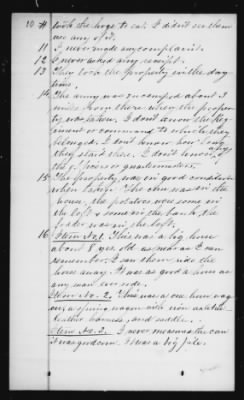 10 # took the hogs to eat. I didn't see them
use any of it.
11 I never made any complaint.
12 I never asked any receipt.
13 They took the property in the day
time.
14 The army was encamped about 3
miles from there when the proper
ty was taken. I don't know the Reg
iment or command to which they
belonged. I don't know how long
they staid there. I don't know any
of the officers or quartermasters.
15 The property was in good condition
when taken. The corn was in the
house, the potatoes were some in
the loft & some in the bank, the
fodder was in the loft.
16 Item No. 1. This was a big horse
about 8 years old as near as I can
remember. I saw them ride the
horse away. It was as good a horse as
any man ever rode.
Item No. 2. This was a one horse wag
on, a spring wagon with iron axletree
leather harness, and saddle.
Item No. 3. I never measured the corn
it was good corn. It was a big pile.